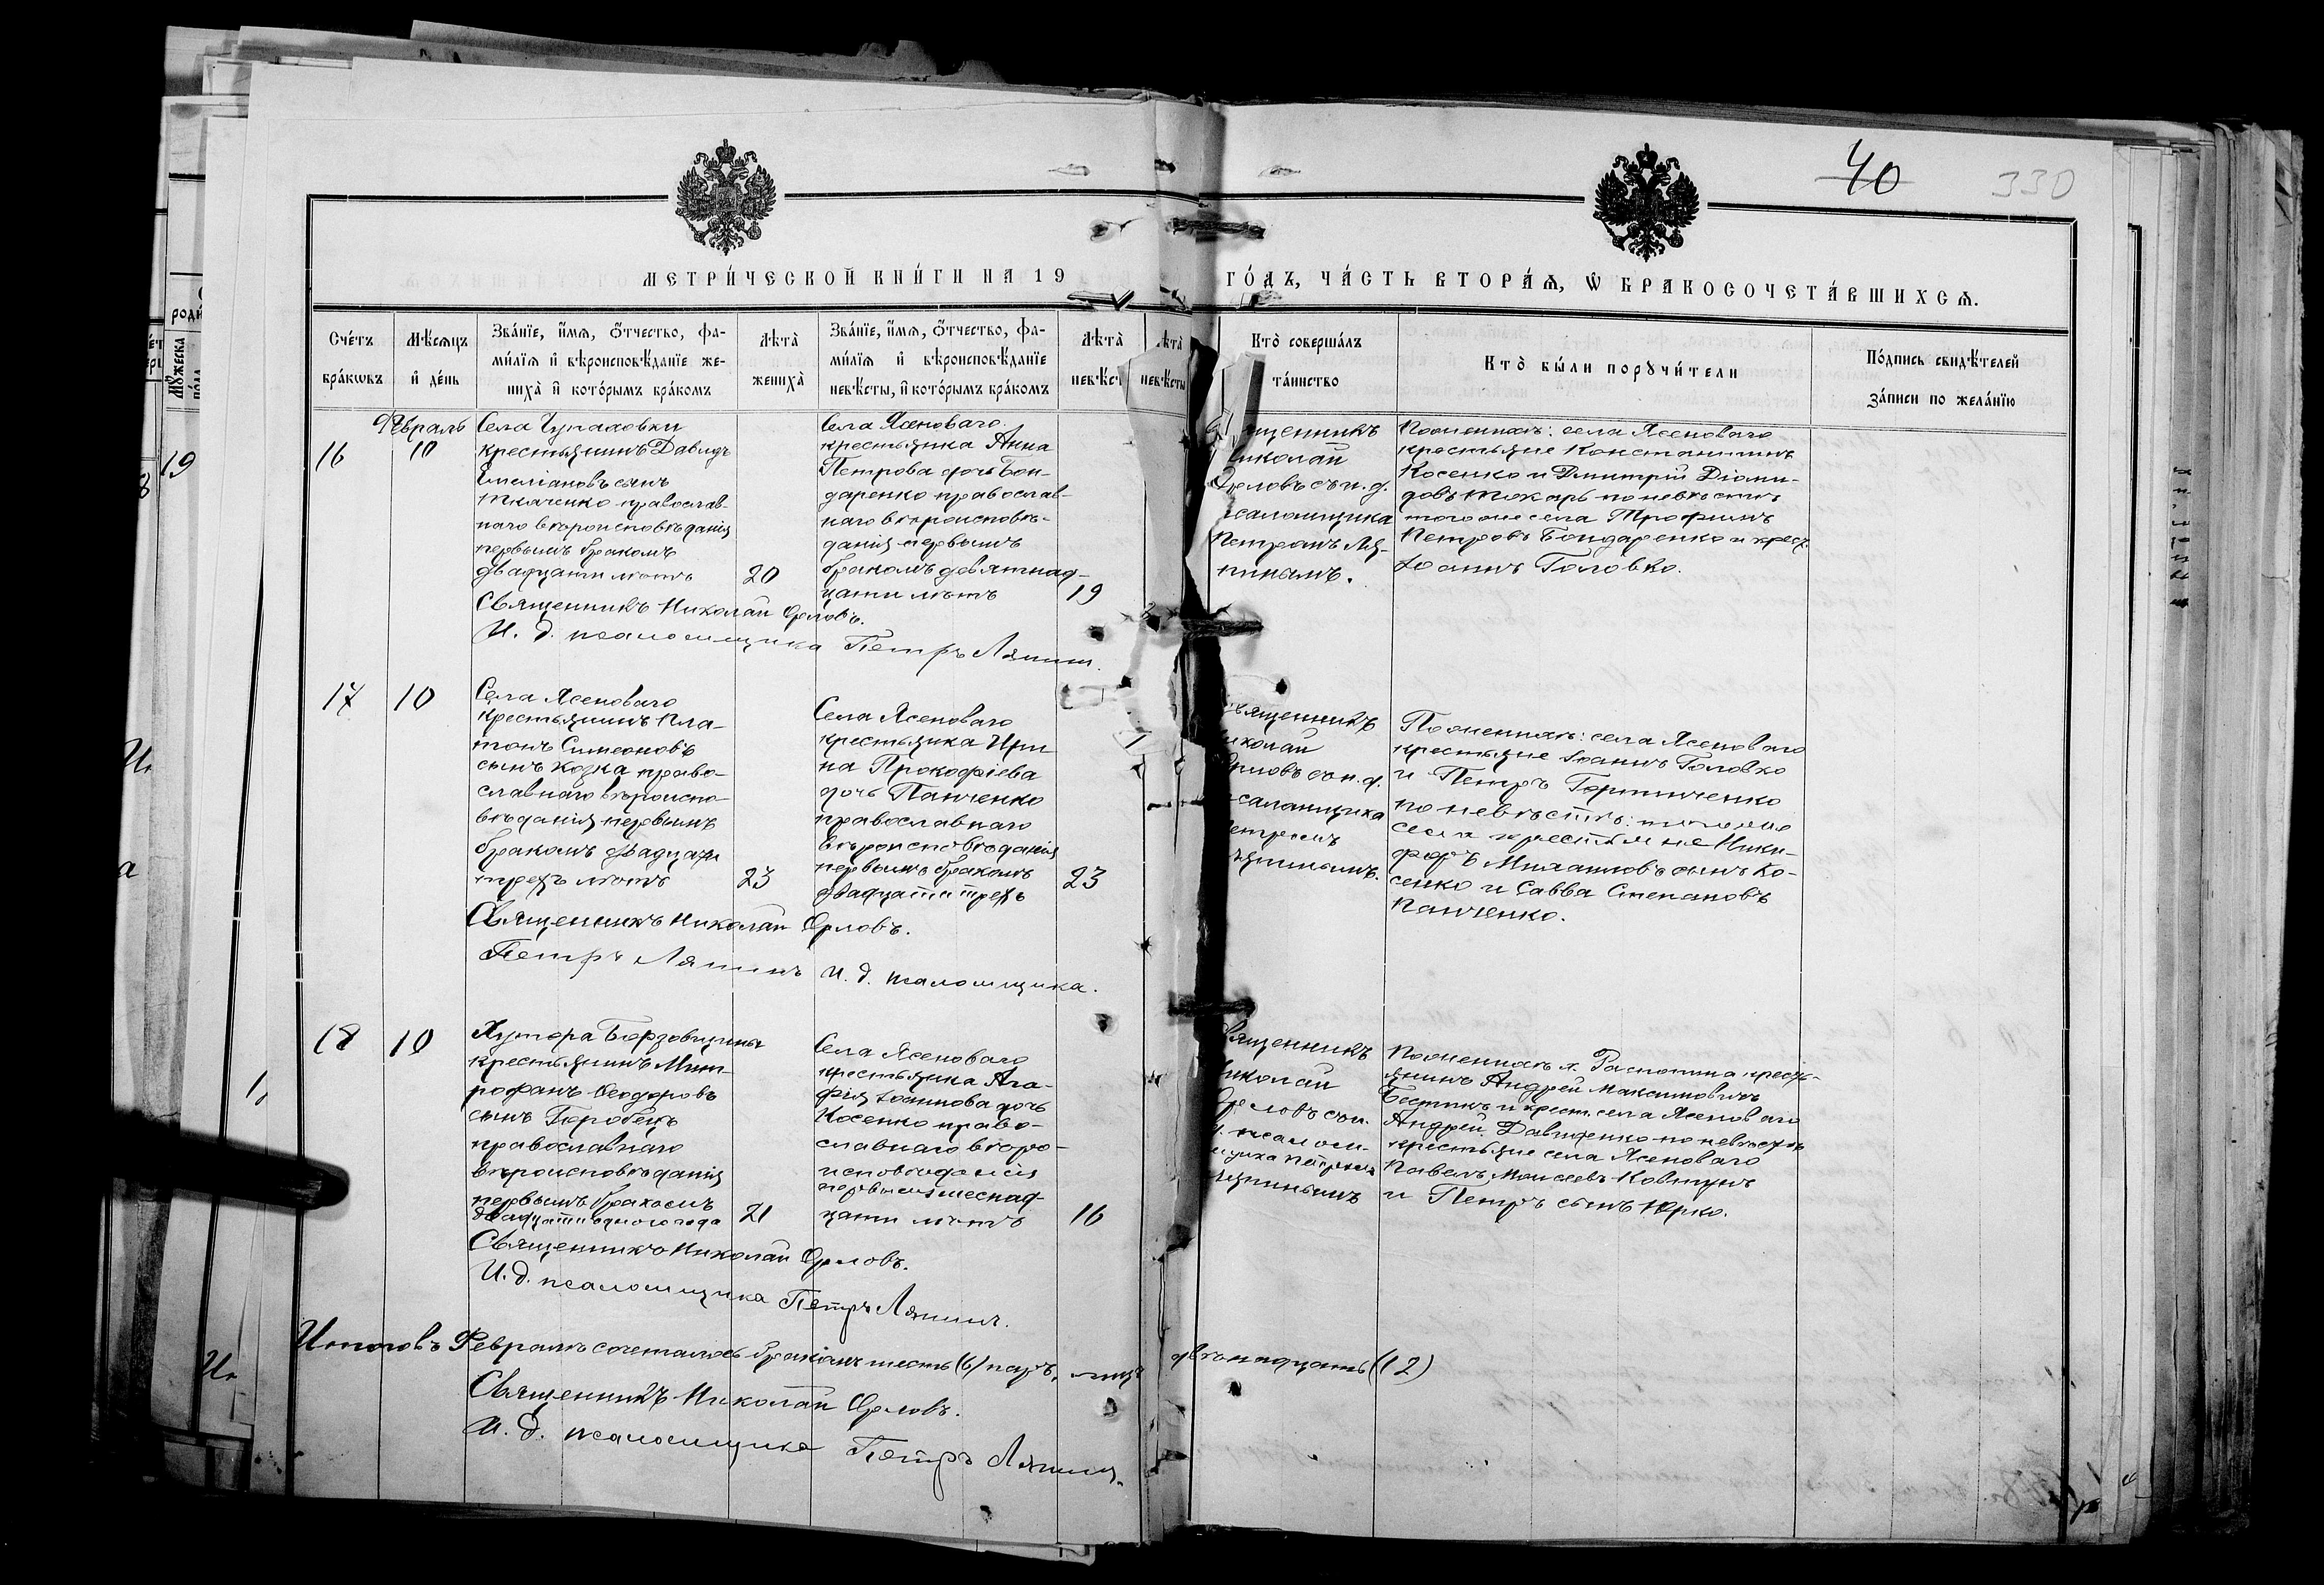 40
330
МЕТРИ́ЧЕСКОЙ КНИ́ГИ НА 19
ГО́ДЪ, ЧА́СТЬ ВТОРА́Ѧ, Ѡ БРАКОСОЧЕТА́ВШИХСѦ.
Сче́тъ
бра́кѡвъ
Мѣ́сѧцъ
и де́нь
Зва́нїе, и́мѧ, ѻ҆́тчество, фа-
ми́лїѧ и вѣроисповѣ́данїе же-
ниха̀ и кото́рымъ бра́комъ
Лѣта̀
жениха̀
Зва́нїе, и́мѧ, ѻ҆́тчество, фа-
ми́лїѧ и вѣроисповѣ́данїе
невѣ́сты, и кото́рымъ бра́комъ
Лѣта̀
невѣ́ст
лѣта̀
невѣ́сты
Кто̀ соверша́лъ
та́инство
Кто̀ бы́ли порꙋчи́тели
По́дпись свидѣ́телей
за́писи по жела́нїю
Февраль
16
10
Села Чупаховки
крестьянинъ Давидъ
Емеліановъ сынъ
Ткаченко православ-
наго вѣроисповѣданія
первымъ бракомъ
двадцати лѣтъ
20
Села Ясеноваго
крестьянка Анна
Петрова дочь Бон-
даренко православ-
наго вѣроисповѣ-
данія первымъ
бракомъ девятнад-
цати лѣтъ
19
щенникъ
иколай
Орловъ съ и. д.
псаломщика
Петромъ Ля-
пинымъ.
По женихѣ: села Ясеноваго
крестьяне Константинъ
Косенко и Дмитрій Діоми-
довъ Токарь по невѣстѣ
того же села Трофимъ
Петровъ Бондаренко и крест.
Іоаннъ Головко.
Священникъ Николай Орловъ.
И. д. псаломщика Петръ Ляпин.
17
10
Села Ясеноваго
крестьянинъ Пла-
тонъ Симеоновъ
сынъ Козка право-
славнаго вѣроиспо-
вѣданія первымъ
бракомъ двадцати
трехъ лѣтъ
23
Села Ясеноваго
крестьянка Ири
на Прокофіева
дочь Панченко
православнаго
вѣроисповѣданія
первымъ бракомъ
двадцати трехъ
23
вященникъ
иколай
Орловъ съ и. д.
псаломщика
Петромъ
япинымъ.
По женихѣ: села Ясеноваго
крестьяне Іоаннъ Головко
и Петръ
по невѣстѣ: того же
села крестьяне Ники-
форъ Михаиловъ сынъ Ко-
сенко и Савва Степановъ
Панченко.
Священникъ Николай Орловъ.
Петръ Ляпинъ И. д. псаломщика.
18
10
Хутора
крестьянинъ Мит-
рофанъ Ѳеодоровъ
сынъ Горобецъ
православнаго
вѣроисповѣданія
первымъ бракомъ
двадцати одного года
21
Села Ясеноваго
крестьянка Ага-
фія Іоаннова дочь
Косенко право-
славнаго вѣро-
исповѣданія
первымъ шеснад-
цати лѣтъ
16
вященникъ
иколай
Орловъ съ и.
д. псалом-
щика Петромъ
япинымъ
По женихѣ х. крестья-
янинъ Андрей Максимовичъ
и крест. села Ясеноваго
Андрей Давиденко по невѣстѣ
крестьяне села Ясеноваго
Павелъ Моисеевъ Ковтунъ
и Петръ сынъ Юрко.
Священникъ Николай Орловъ.
И. д. псаломщика Петръ Ляпинъ.
Итого въ Февралѣ сочеталось бракомъ шесть (6) паръ, лицъ двѣнадцать (12)
Священникъ Николай Орловъ.
И. д. псаломщика Петръ Ляпинъ.